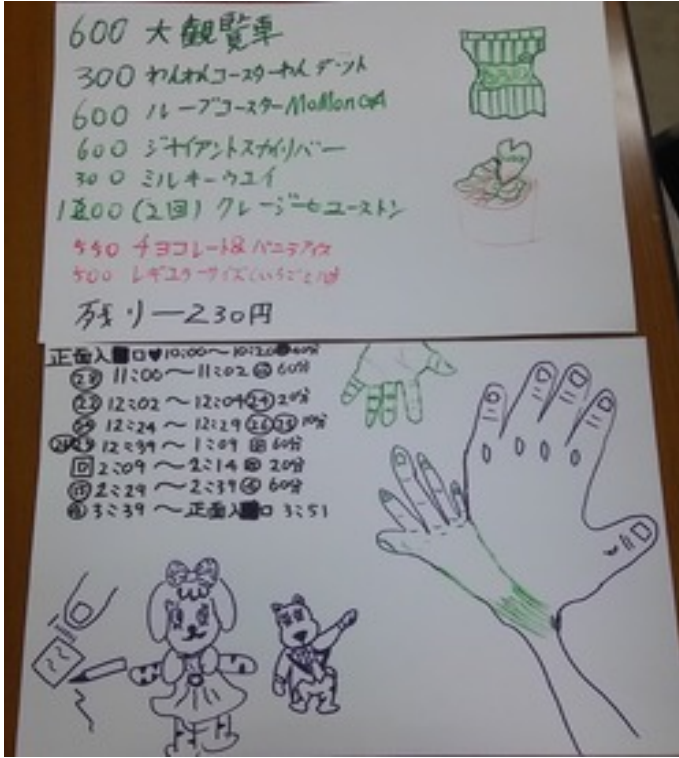 600 大観覧車
300 わんわんコースターわんデット
600 ループコースターMOMOnGA
600 ジャイアントスカイリバー
300 ミルキーウエイ
1200(2回) クレージーヒューストン
550 チョコレート&バニラアイス
500 レギュラーサイズ(いちごと
残り―230円
正面入口♥10:00~10:20 60分
28 11:00~11:02 60分
22 12:02~12:04 24 20分
12:24~12:29 10分
12:39~1:09 60分
2:09~2:14 20分
2:29~2:39 60分
3:39~正面入口 3:51